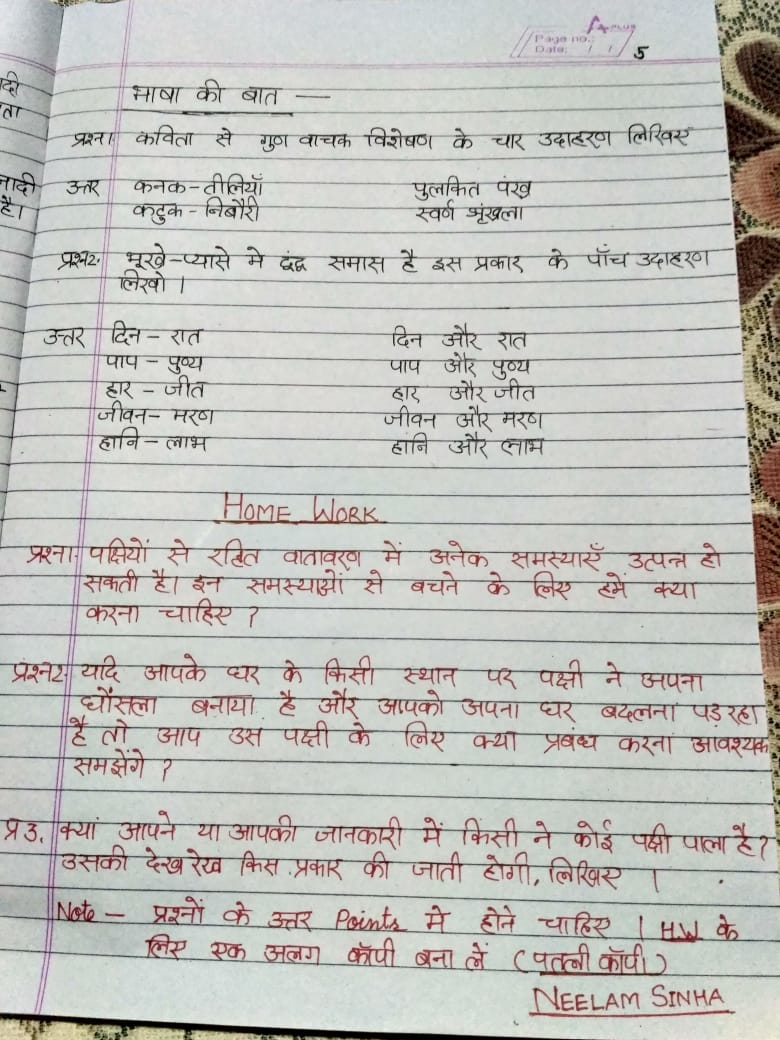 A PLUS
Page no.:
Date: / / 5
भाषा की बात —
प्रश्न1. कविता से गुण वाचक विशेषण के चार उदाहरण लिखिए
उत्तर कनक-तीलियाँ पुलकित पंख
कटुक-निबौरी स्वर्ण श्रृंखला
प्रश्न2. भूखे-प्यासे मे द्वंद्व समास है इस प्रकार के पाँच उदाहरण
लिखो।
उत्तर दिन-रात दिन और रात
पाप-पुण्य पाप और पुण्य
हार-जीत हार और जीत
जीवन-मरण जीवन और मरण
हानि-लाभ हानि और लाभ
HOME WORK
प्रश्न1. पक्षियों से रहित वातावरण में अनेक समस्याएँ उत्पन्न हो
सकती है। इन समस्याओं से बचने के लिए हमें क्या
करना चाहिए ?
प्रश्न2. यदि आपके घर के किसी स्थान पर पक्षी ने अपना
घौंसला बनाया है और आपको अपना घर बदलना पड़ रहा
है तो आप उस पक्षी के लिए क्या प्रबंध करना आवश्यक
समझेंगे ?
प्र 3. क्या आपने या आपकी जानकारी में किसी ने कोई पक्षी पाला है?
उसकी देख रेख किस प्रकार की जाती होगी, लिखिए।
Note - प्रश्नों के उत्तर Points मे होने चाहिए। H.W के
लिए एक अलग कॉपी बना लें (पतली कॉपी)
NEELAM SINHA